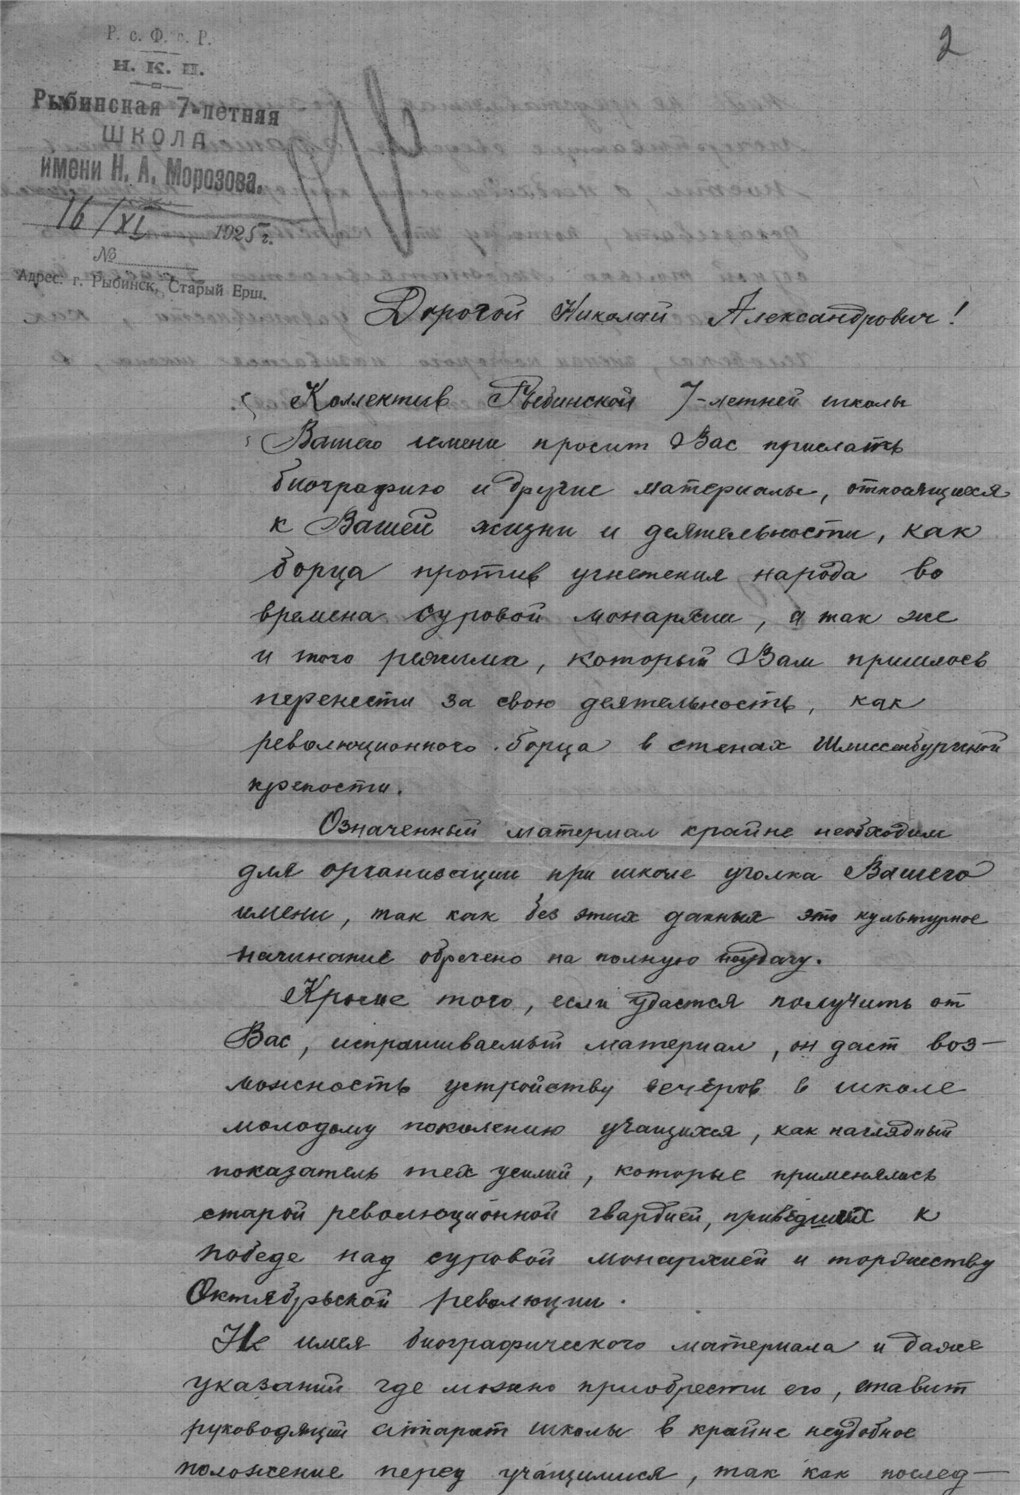 2
Р. с. Ф. с. Р.
Н. К. П.
Рыбинская 7-летняя
ШКОЛА
имени Н. А. Морозова.
16/XI 1925 г.
№
Адрес: г. Рыбинск, Старый Ерш.
Дорогой Николай Александрович!
Коллектив Рыбинской 7-летней школы
Вашего имени просит Вас прислать
биографию и другие материалы, относящиеся
к Вашей жизни и деятельности, как
борца против угнетения народа во
времена суровой монархии, а так же
и того режима, который Вам пришлось
перенести за свою деятельность, как
революционного борца в стенах Шлиссельбургской
крепости.
Означенный материал крайне необходим
для организации при школе уголка Вашего
имени, так как без этих данных это культурное
начинание обречено на полную неудачу.
Кроме того, если удастся получить от
Вас, испрашиваемый материал, он даст воз-
можность устройству вечеров в школе
молодому поколению учащихся, как наглядный
показатель тех усилий, которые применялись
старой революционной гвардией, приведших к
победе над суровой монархией и торжеству
Октябрьской революции.
Не имея биографического материала и даже
указаний где можно приобрести его, ставит
руководящий аппарат школы в крайне неудобное
положение перед учащимися, так как послед-